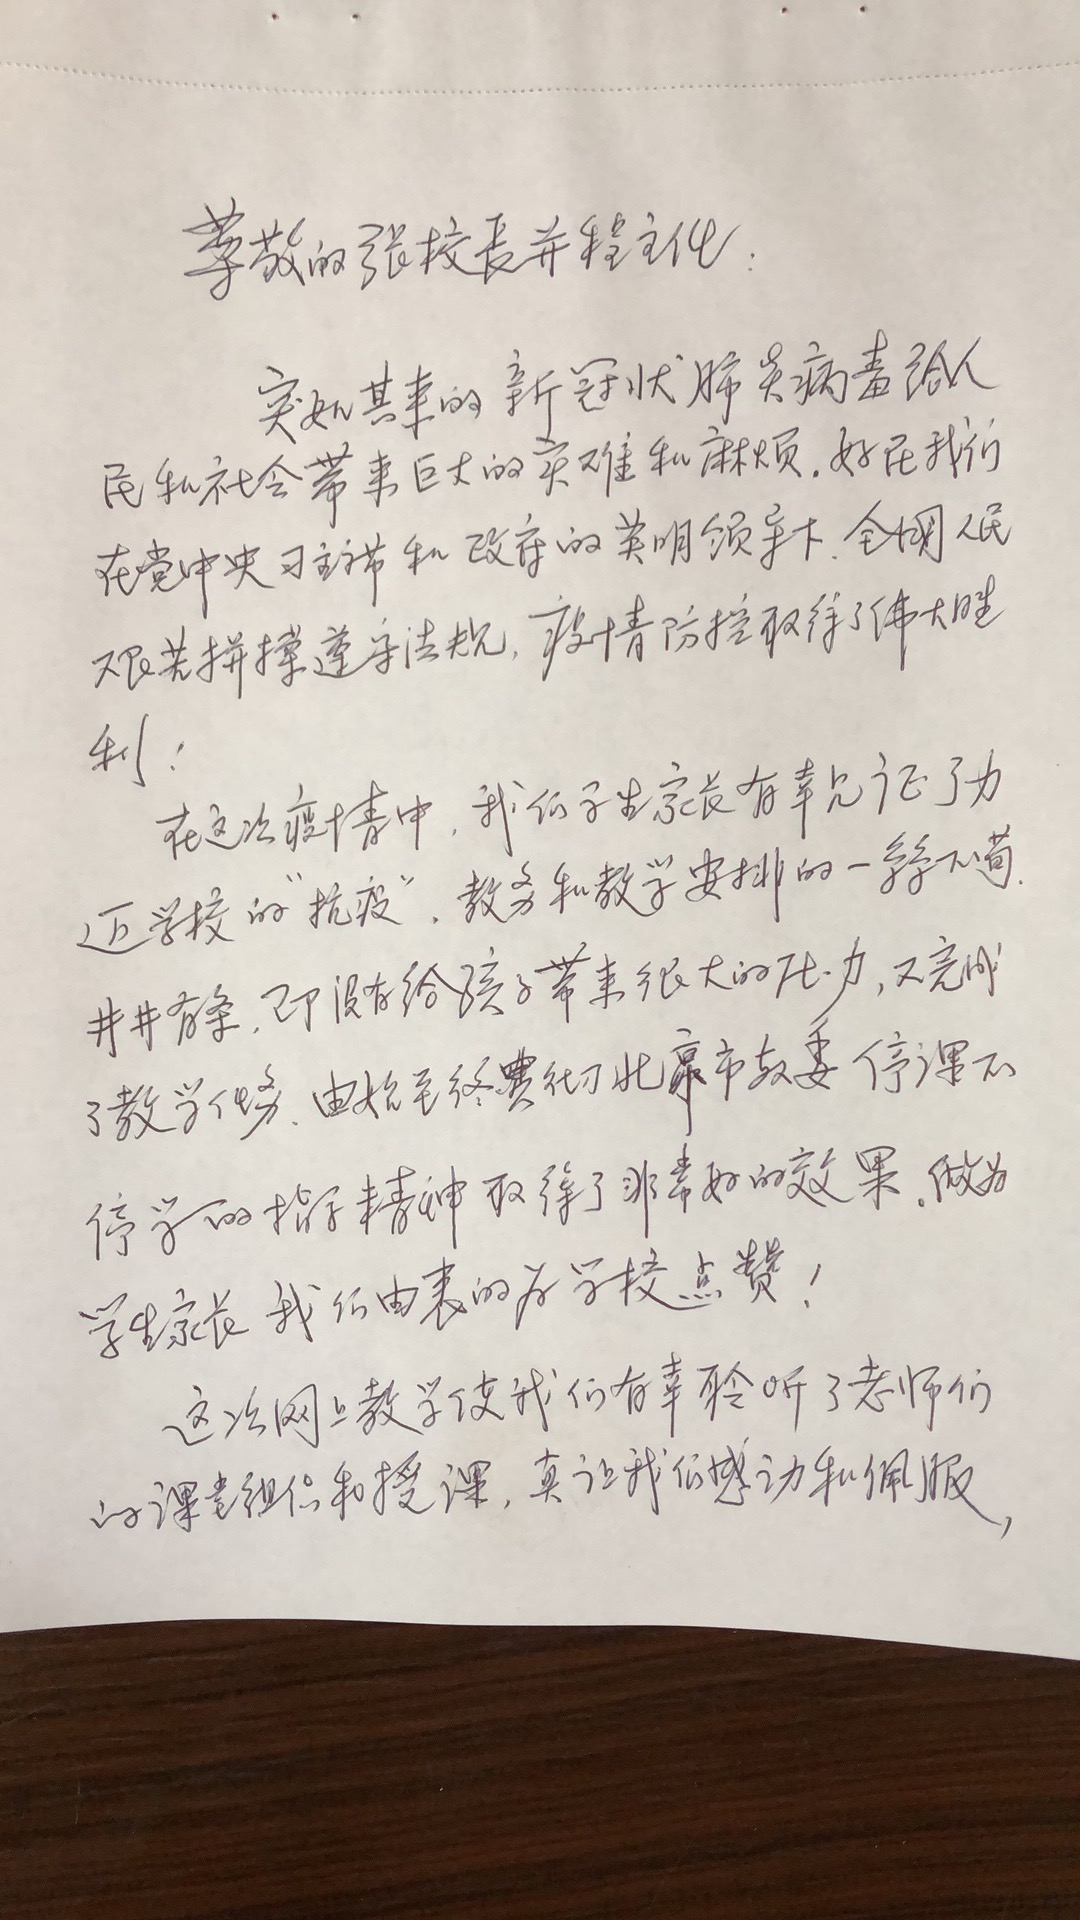 尊敬的张校长并程主任：
突如其来的新冠状肺炎病毒给人
民和社会带来巨大的灾难和麻烦．好在我们
在党中央习主席和政府的英明领导下．全国人民
艰苦拼搏遵守法规，疫情防控取得了伟大胜
利！
在这次疫情中，我们学生家长有幸见证了力
迈学校的“抗疫”．教务和教学安排的一丝不苟．
井井有条．即没有给孩子带来很大的压力，又完成
了教学任务．由始至终贯彻北京市教委停课不
停学的指导精神取得了非常好的效果．做为
学生家长我们由衷的为学校点赞！
这次网上教学使我们有幸聆听了老师们
的课堂组织和授课，真让我们感动和佩服，